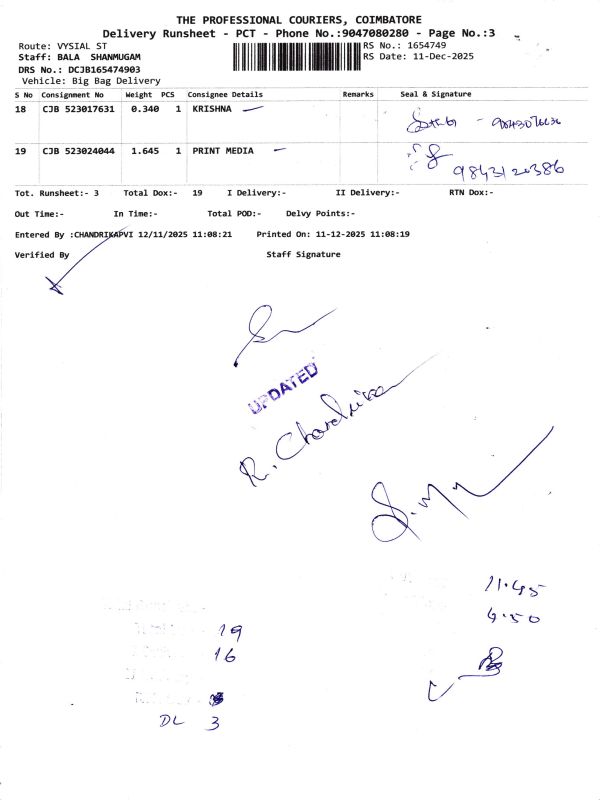 THE PROFESSIONAL COURIERS, COIMBATORE
Delivery Runsheet - PCT - Phone No.:9047080280 - Page No.:3
Route: VYSIAL ST RS No.: 1654749
Staff: BALA SHANMUGAM RS Date: 11-Dec-2025
DRS No.: DCJB165474903
Vehicle: Big Bag Delivery
S No Consignment No Weight PCS Consignee Details Remarks Seal & Signature
18 CJB 523017631 0.340 1 KRISHNA
19 CJB 523024044 1.645 1 PRINT MEDIA
9843120386
Tot. Runsheet:- 3 Total Dox:- 19 I Delivery:- II Delivery:- RTN Dox:-
Out Time:- In Time:- Total POD:- Delvy Points:-
Entered By :CHANDRIKAPVI 12/11/2025 11:08:21 Printed On: 11-12-2025 11:08:19
Verified By Staff Signature
UPDATED
R. Chandrika
11.45
4.50
19
16
DL 3